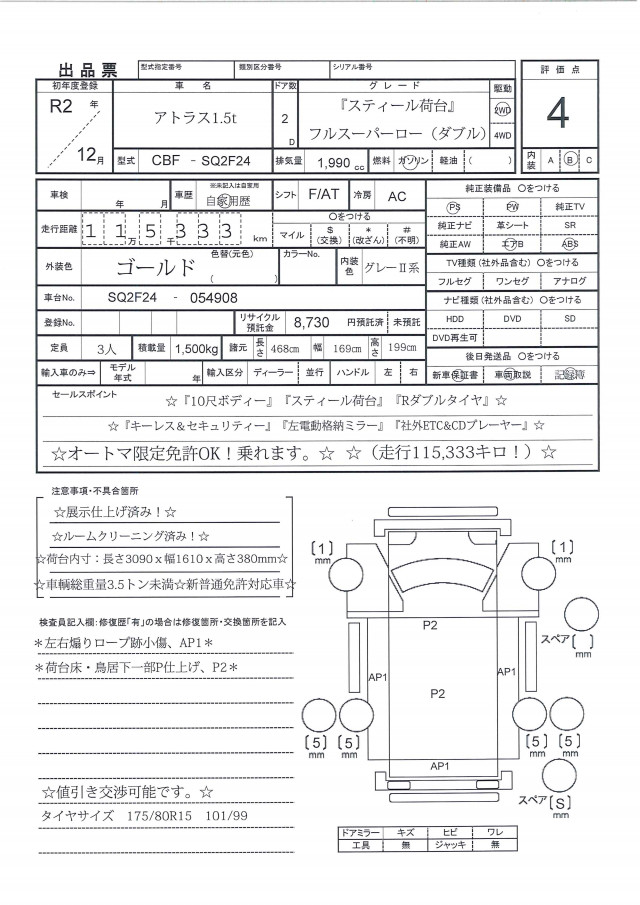 出品票 型式指定番号 類別区分番号 シリアル番号
初年度登録 車名 ドア数 グレード 駆動 評価点
R2年 アトラス1.5t 2D 『スティール荷台』 2WD 4
12月 フルスーパーロー（ダブル） 4WD
型式 CBF - SQ2F24 排気量 1,990cc 燃料 ガソリン 軽油 （ ） 内装 A B C
車検 年 月 車歴 ※未記入は自家用 自家用歴 シフト F/AT 冷房 AC 純正装備品 〇をつける
PS PW 純正TV
走行距離 11万5千333km 〇をつける マイル $(交換) *(改ざん) #(不明) 純正ナビ 革シート SR
純正AW エアB ABS
外装色 ゴールド 色替(元色) （ カラーNo. 内装色 グレーⅡ系 TV種類(社外品含む) 〇をつける
フルセグ ワンセグ アナログ
車台No. SQ2F24 - 054908 ナビ種類(社外品含む) 〇をつける
登録No. リサイクル預託金 8,730 円預託済 未預託 HDD DVD SD
DVD再生可
定員 3人 積載量 1,500kg 諸元 長さ 468cm 幅 169cm 高さ 199cm 後日発送品 〇をつける
輸入車のみ⇒ モデル年式 年 輸入区分 ディーラー 並行 ハンドル 左 右 新車保証書 車両取説 記録簿
セールスポイント ☆『10尺ボディー』『スティール荷台』『Rダブルタイヤ』☆
☆『キーレス＆セキュリティー』『左電動格納ミラー』『社外ETC&CDプレーヤー』☆
☆オートマ限定免許OK！乗れます。☆ ☆（走行115,333キロ！）☆
注意事項・不具合箇所
☆展示仕上げ済み！☆
☆ルームクリーニング済み！☆
☆荷台内寸：長さ3090ｘ幅1610ｘ高さ380mm☆
☆車輌総重量3.5トン未満☆新普通免許対応車☆
検査員記入欄：修復歴「有」の場合は修復箇所・交換箇所を記入
＊左右煽りロープ跡小傷、AP1＊
＊荷台床・鳥居下一部P仕上げ、P2＊
☆値引き交渉可能です。☆
タイヤサイズ 175/80R15 101/99
[1]mm [1]mm
P2
スペア[ ]mm
AP1 P2 AP1
[5]mm [5]mm [5]mm [5]mm
AP1
スペア[S]mm
ドアミラー キズ ヒビ ワレ
工具 無 ジャッキ 無